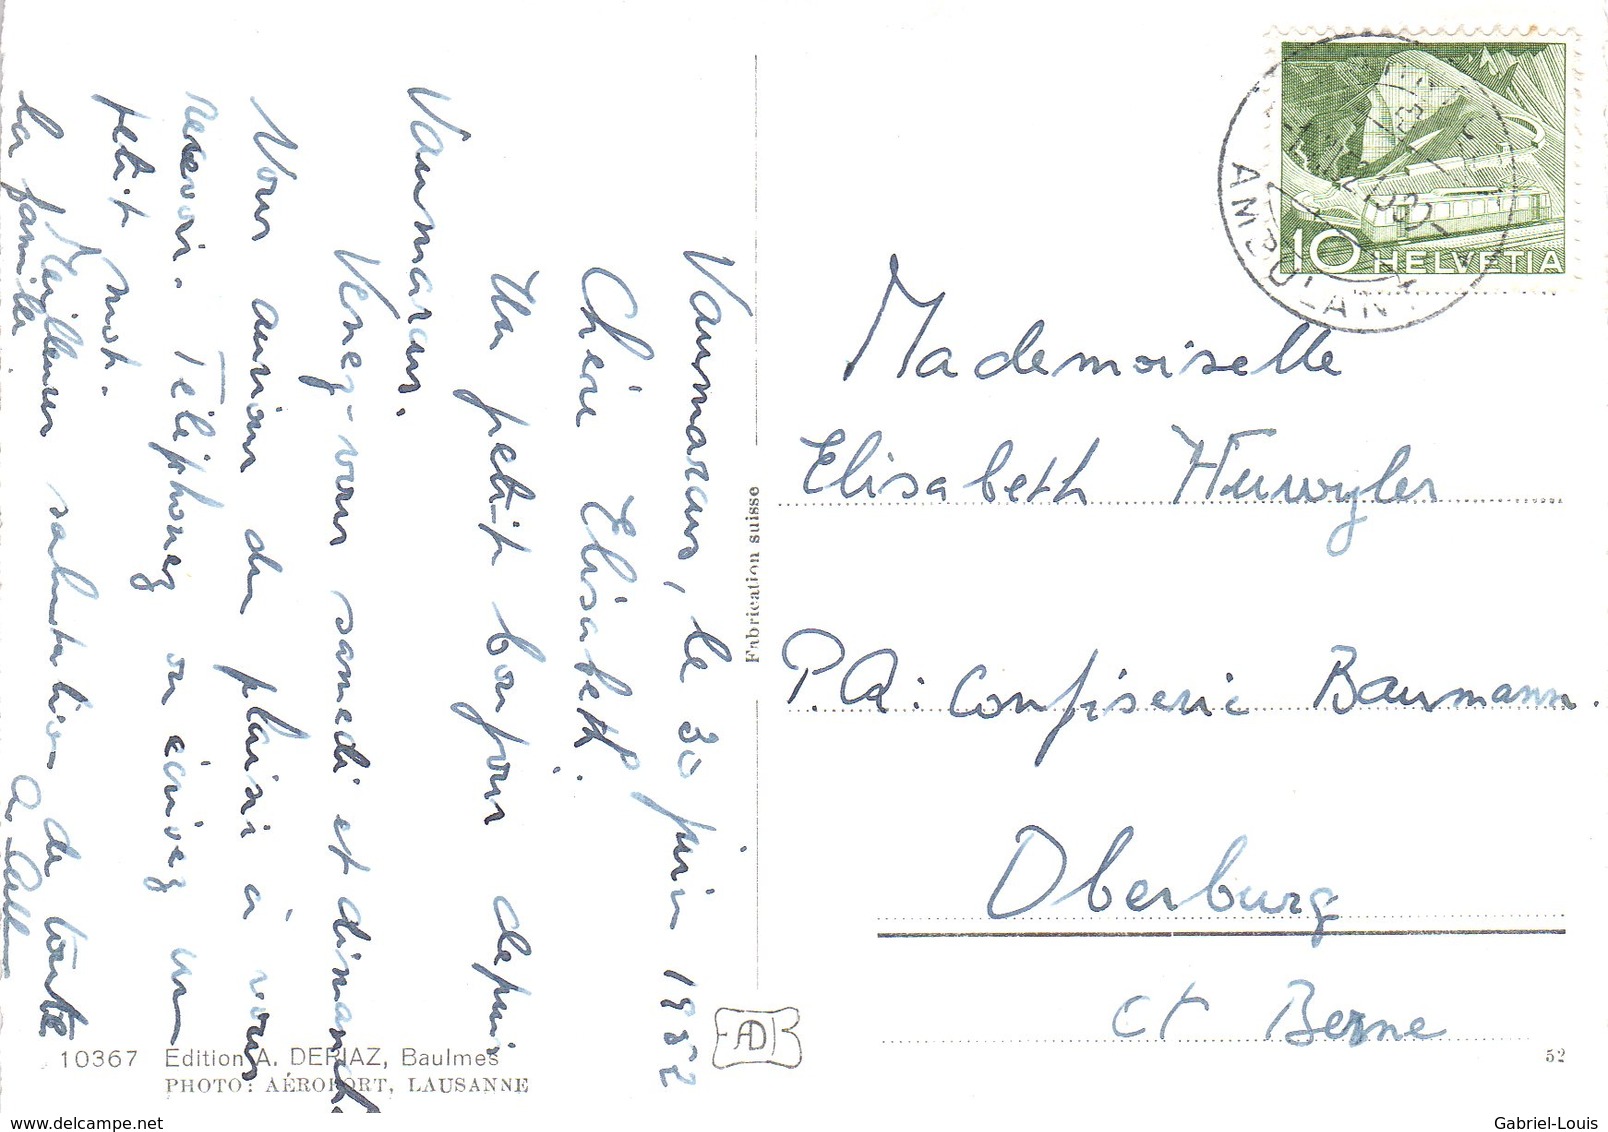 Vaumarcus, le 30 juin 1952
Chère Elisabeth.
Un petit bonjour depuis
Vaumarcus.
Venez-vous samedi et dimanche
Nous aurions du plaisir à vous
recevoir. Téléphonez ou écrivez un
petit mot.
Meilleures salutations de toute
la famille
10367 Edition A. DERIAZ, Baulmes
PHOTO: AÉROPORT, LAUSANNE
Fabrication suisse
AD
10 HELVETIA
AMBULANT
Mademoiselle
Elisabeth Huwyler
P.A: Confiserie Baumann.
Oberburg
Ct Berne
52
Gabriel-Louis